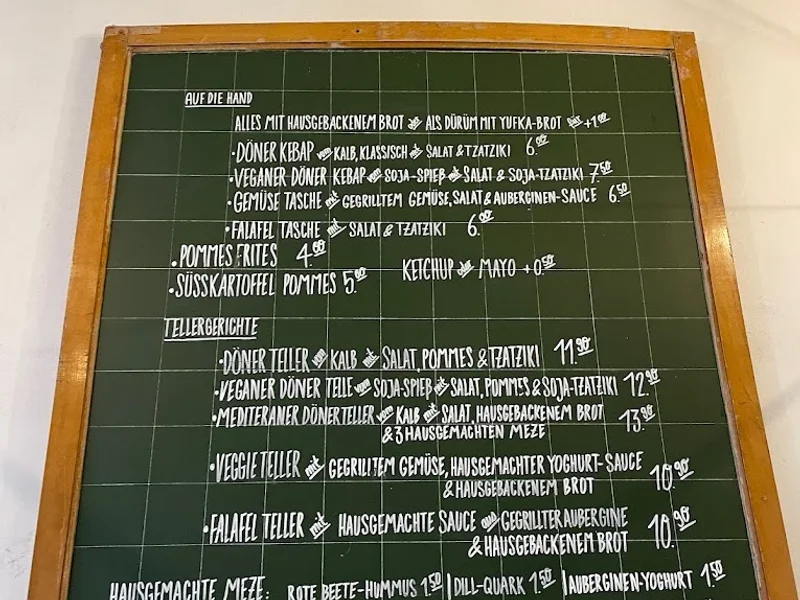 AUF DIE HAND
ALLES MIT HAUSGEBACKENEM BROT oder ALS DÜRÜM MIT YUFKA-BROT für +1.00
·DÖNER KEBAP vom KALB, KLASSISCH mit SALAT & TZATZIKI 6.00
·VEGANER DÖNER KEBAP vom SOJA-SPIEß mit SALAT & SOJA-TZATZIKI 7.50
·GEMÜSE TASCHE mit GEGRILLTEM GEMÜSE, SALAT & AUBERGINEN-SAUCE 6.50
·FALAFEL TASCHE mit SALAT & TZATZIKI 6.00
·POMMES FRITES 4.00
·SÜSSKARTOFFEL POMMES 5.00 KETCHUP oder MAYO +0.50
TELLERGERICHTE
·DÖNER TELLER vom KALB mit SALAT, POMMES & TZATZIKI 11.90
·VEGANER DÖNER TELLE vom SOJA-SPIEß mit SALAT, POMMES & SOJA-TZATZIKI 12.90
·MEDITERANER DÖNERTELLER vom KALB mit SALAT, HAUSGEBACKENEM BROT 13.90
& 3 HAUSGEMACHTEN MEZE
·VEGGIE TELLER mit GEGRILLTEM GEMÜSE, HAUSGEMACHTER YOGHURT-SAUCE 10.90
& HAUSGEBACKENEM BROT
·FALAFEL TELLER mit HAUSGEMACHTE SAUCE aus GEGRILLTER AUBERGINE 10.90
& HAUSGEBACKENEM BROT
HAUSGEMACHTE MEZE: ROTE BEETE-HUMMUS 1.50 | DILL-QUARK 1.50 | AUBERGINEN-YOGHURT 1.50